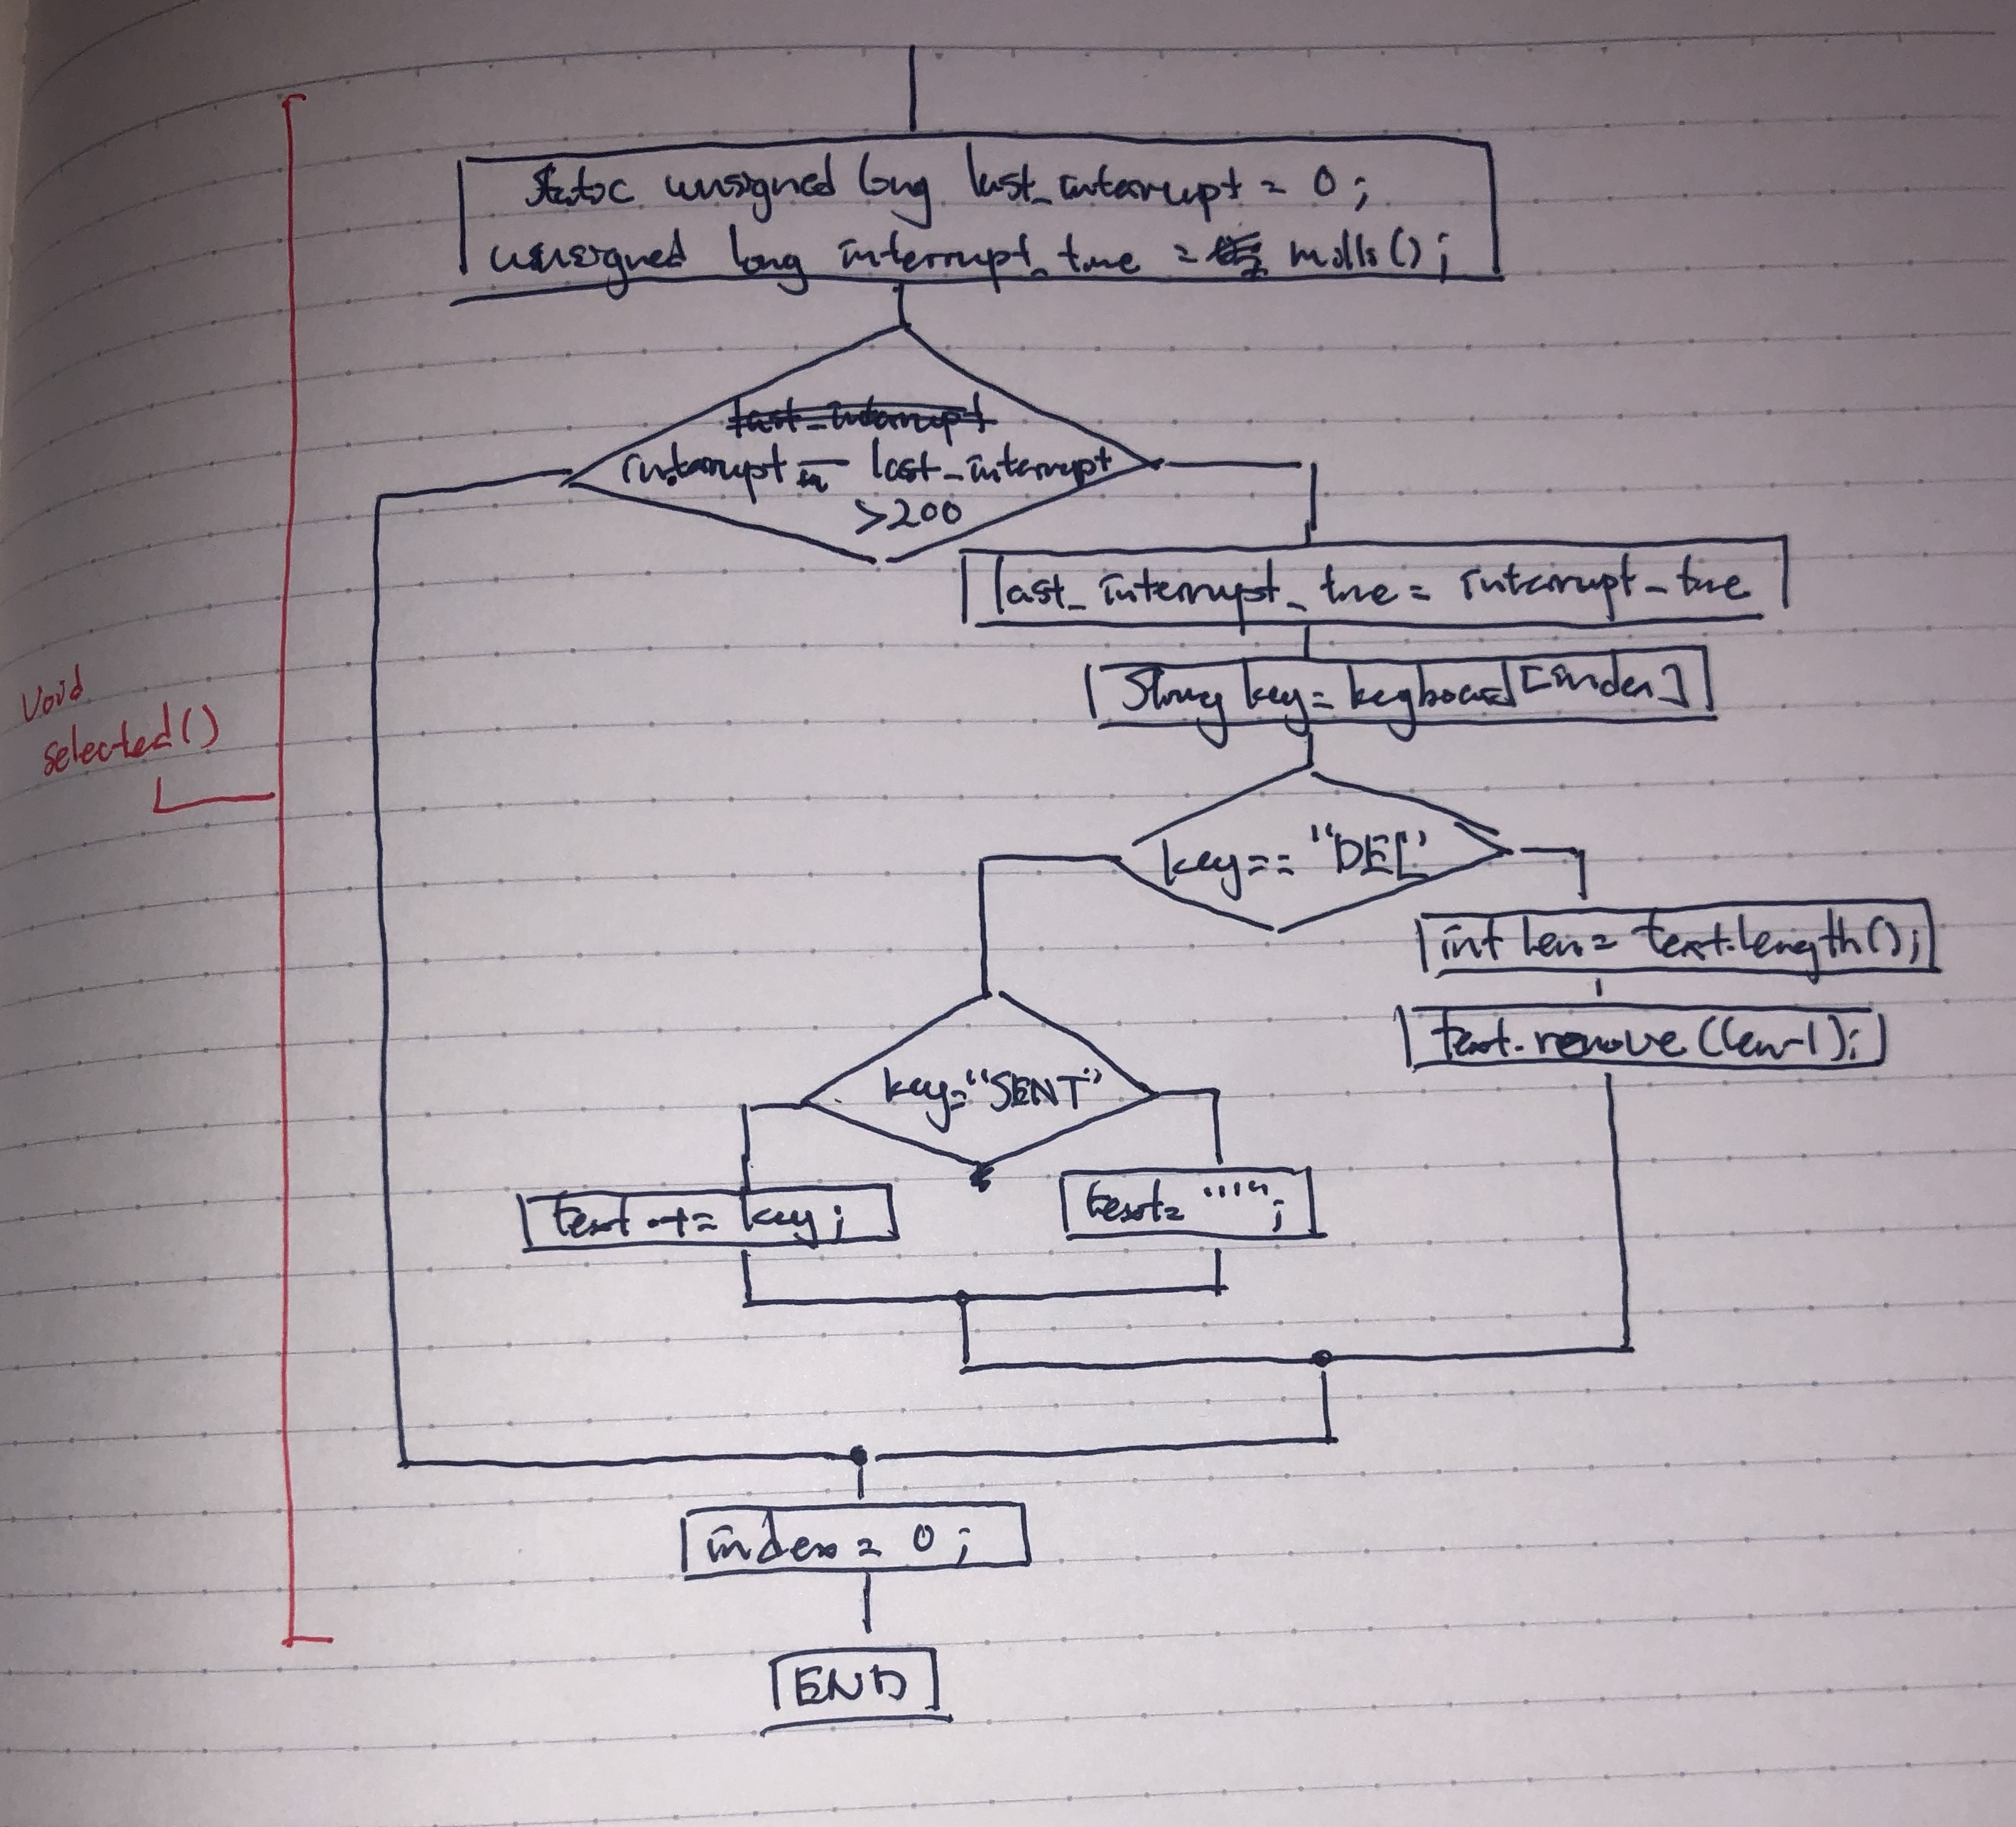 static unsigned long last_interrupt = 0;
unsigned long interrupt_time = millis();
last_interrupt
interrupt - last_interrupt
>200
last_interrupt_time = interrupt_time
String key = keyboard[index]
void
selected()
key == "DEL"
int len = text.length();
text.remove(len-1);
key="SENT"
text += key;
text= "";
index = 0;
END